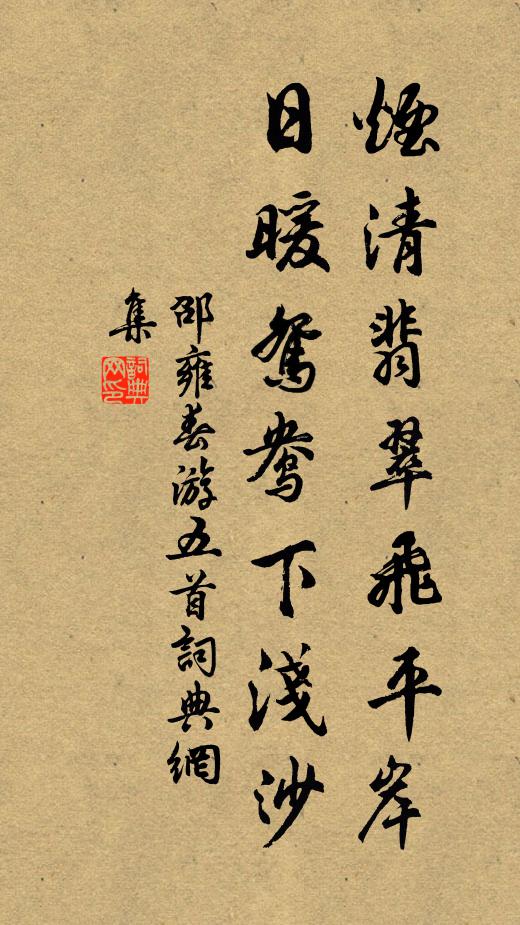 煙清翡翠飛平岸
日暖鴛鴦下淺沙
邵雍春游五首詞典網
集
詞典
网印